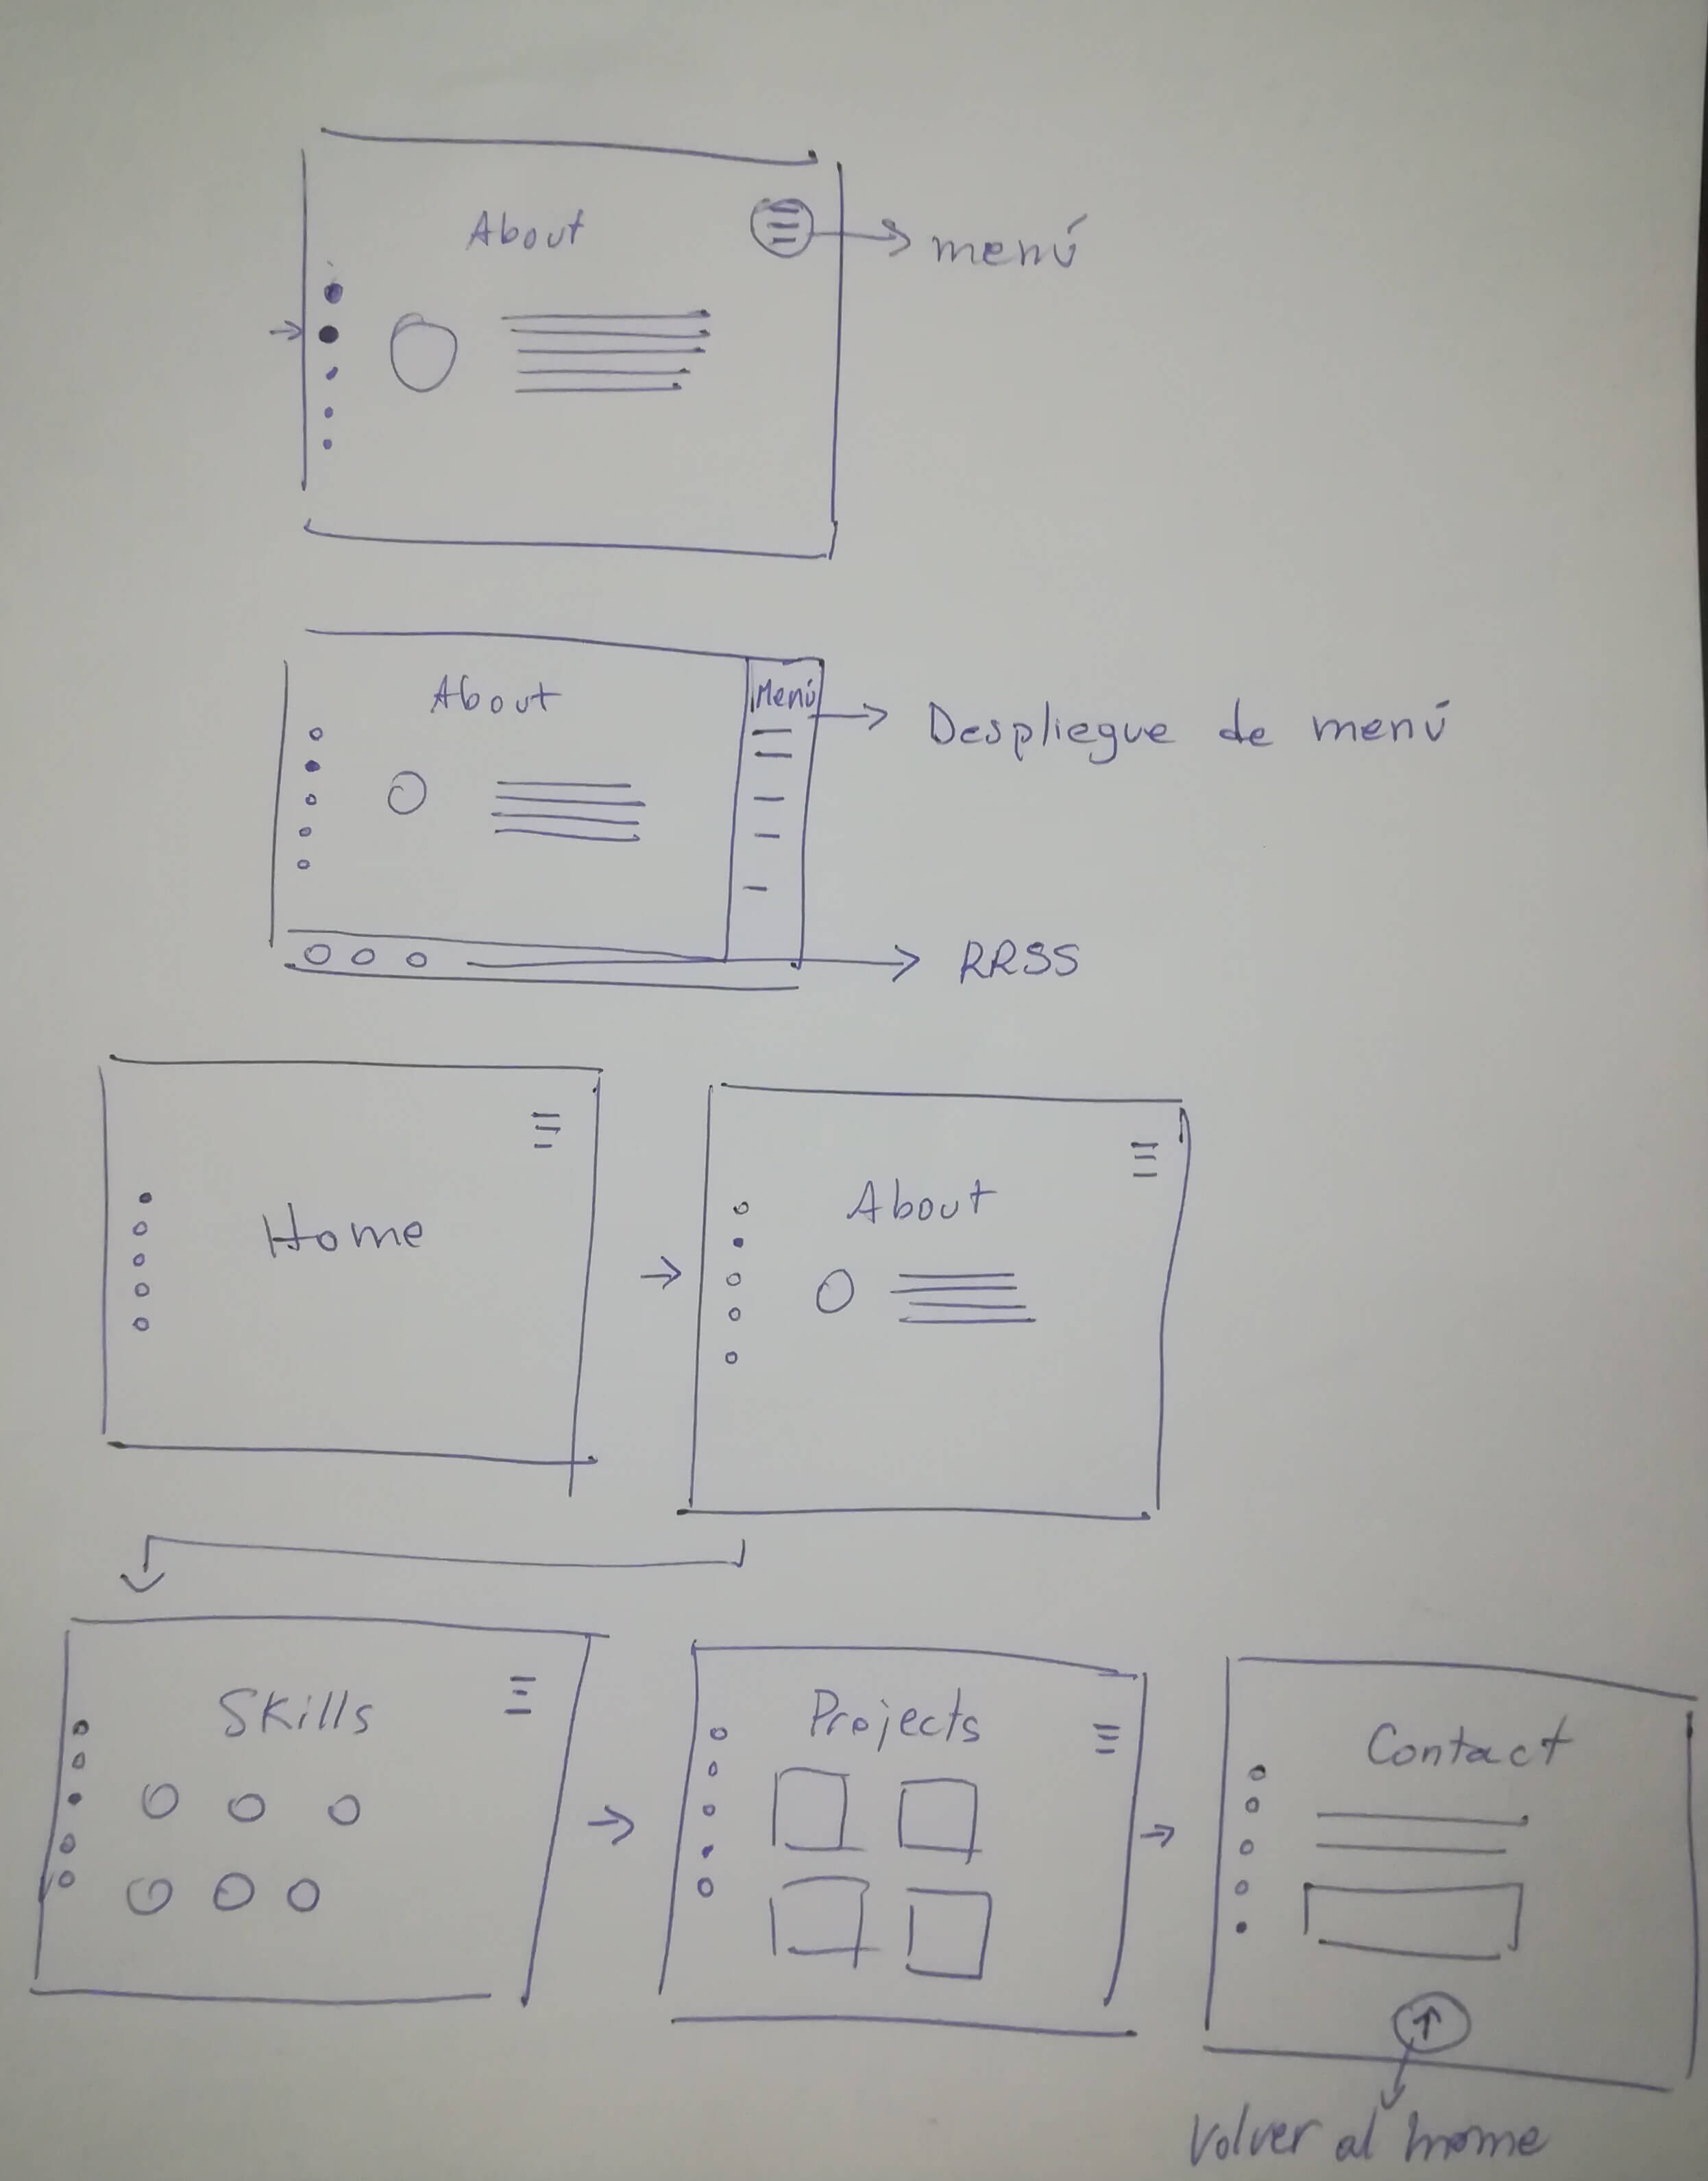 About
menú
About
Menú
Despliegue de menú
RRSS
Home
About
Skills
Projects
Contact
Volver al home